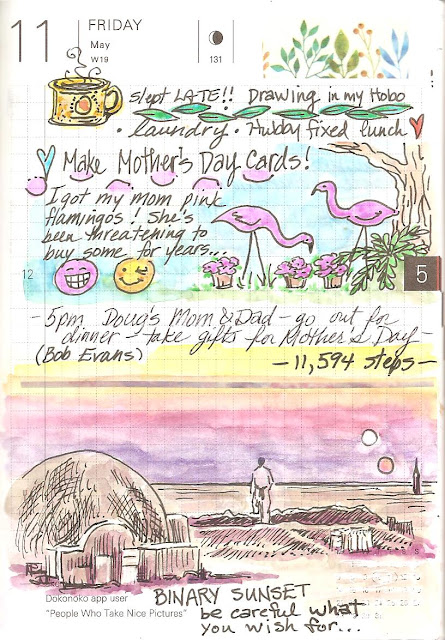 11 FRIDAY
May
W19
131
slept LATE!! Drawing in my Hobo
• laundry • Hubby fixed lunch
Make Mother's Day Cards!
I got my mom pink
flamingos! She's
been threatening to
buy some for years...
12
5
- 5pm Doug's Mom & Dad - go out for
dinner - take gifts for Mother's Day -
(Bob Evans)
- 11,594 steps -
Dokonoko app user
"People Who Take Nice Pictures"
BINARY SUNSET
be careful what
you wish for...